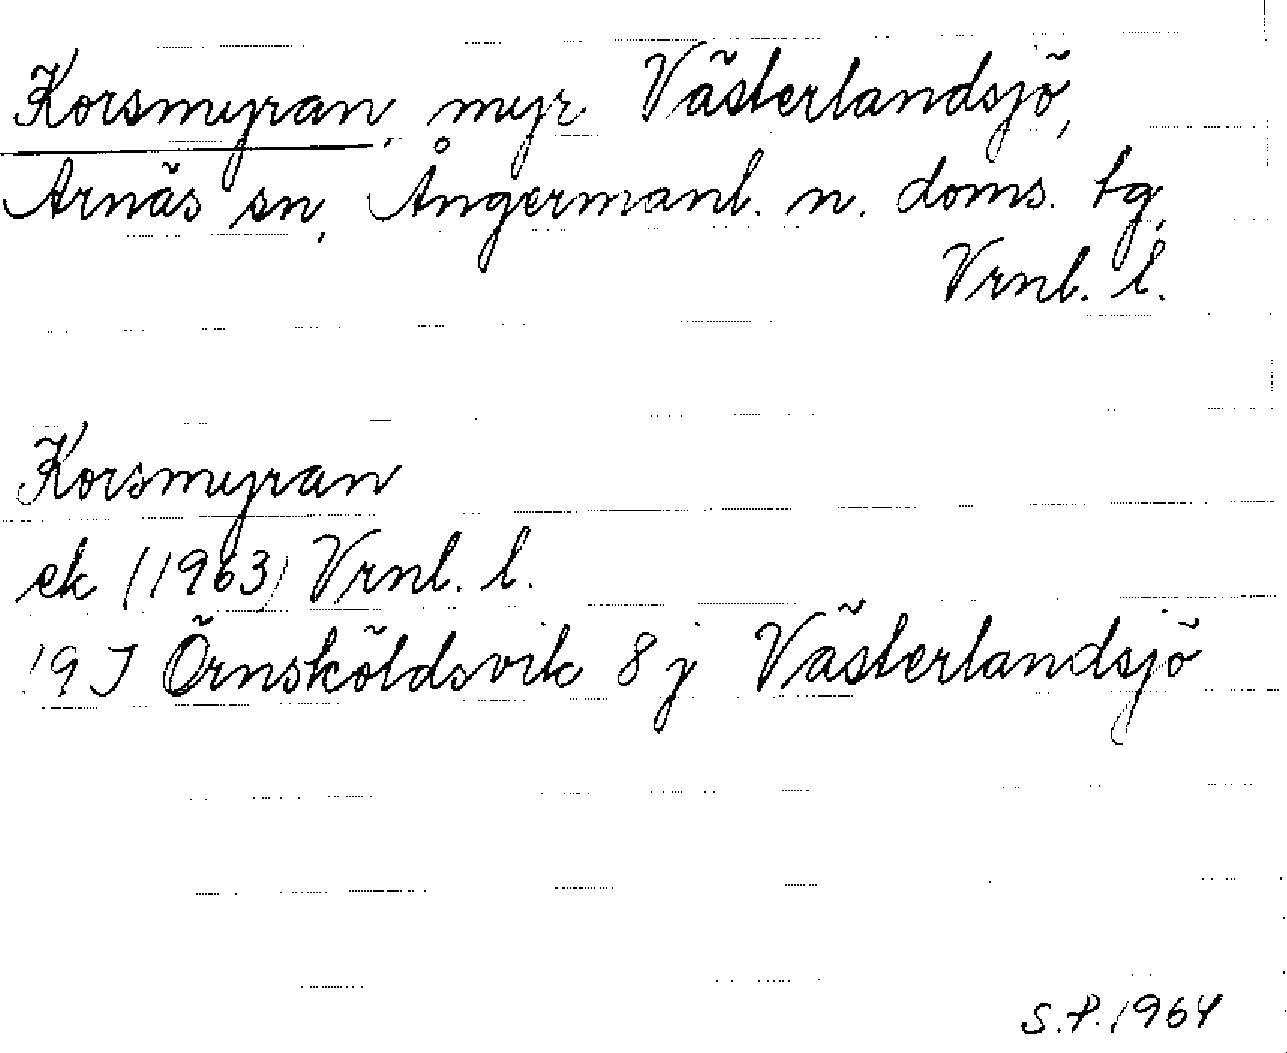 Korsmyran, myr Västerlandsjö,
Arnäs sn, Ångermanl. n. doms. tg,
Vrnl. l.
Korsmyran
ek (1963) Vrnl. l.
19 J Örnsköldsvik 8 j Västerlandsjö
S.P. 1964